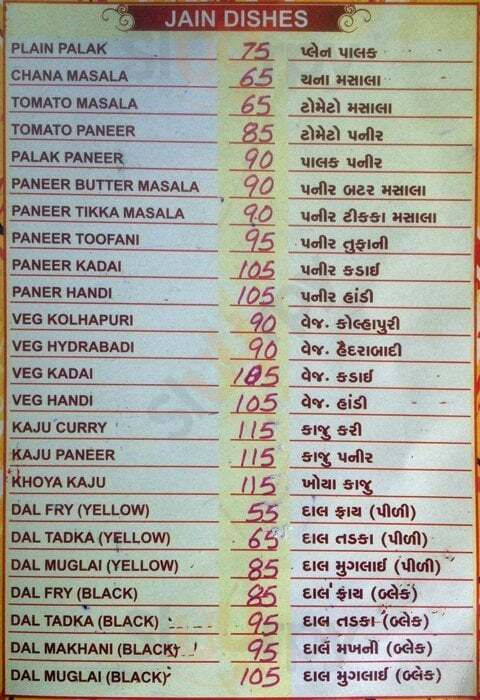 JAIN DISHES
PLAIN PALAK 75 પ્લેન પાલક
CHANA MASALA 65 ચના મસાલા
TOMATO MASALA 65 ટોમેટો મસાલા
TOMATO PANEER 85 ટોમેટો પનીર
PALAK PANEER 90 પાલક પનીર
PANEER BUTTER MASALA 90 પનીર બટર મસાલા
PANEER TIKKA MASALA 90 પનીર ટીકકા મસાલા
PANEER TOOFANI 95 પનીર તુફાની
PANEER KADAI 105 પનીર કડાઈ
PANER HANDI 105 પનીર હાંડી
VEG KOLHAPURI 90 વેજ. કોલ્હાપુરી
VEG HYDRABADI 90 વેજ. હૈદરાબાદી
VEG KADAI 105 વેજ. કડાઈ
VEG HANDI 105 વેજ. હાંડી
KAJU CURRY 115 કાજુ કરી
KAJU PANEER 115 કાજુ પનીર
KHOYA KAJU 115 ખોયા કાજુ
DAL FRY (YELLOW) 55 દાલ ફ્રાય (પીળી)
DAL TADKA (YELLOW) 65 દાલ તડકા (પીળી)
DAL MUGLAI (YELLOW) 85 દાલ મુગલાઈ (પીળી)
DAL FRY (BLACK) 85 દાલ ફ્રાય (બ્લેક)
DAL TADKA (BLACK) 95 દાલ તડકા (બ્લેક)
DAL MAKHANI (BLACK) 95 દાલ મખની (બ્લેક)
DAL MUGLAI (BLACK) 105 દાલ મુગલાઈ (બ્લેક)